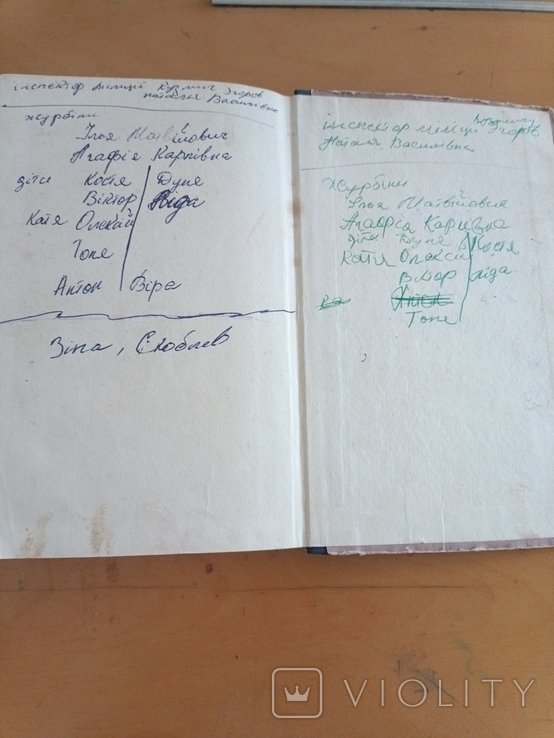 інспектор міліції Кузмич Єгоров
Наталя Василівна
Журбіни
Ілля Матвійович
Агафія Карпівна
діти Костя Дуня
Віктор Ліда
Катя Олексій
Тоня
Антон Віра
Зіна, Скобліев
Кузмич
інспектор міліції Єгоров
Наталя Василівна
Журбіни
Ілля Матвійович
Агафія Карпівна
діти Дуня Костя
Катя Олексій
Віктор Ліда
Антон
Тоня
VIOLITY